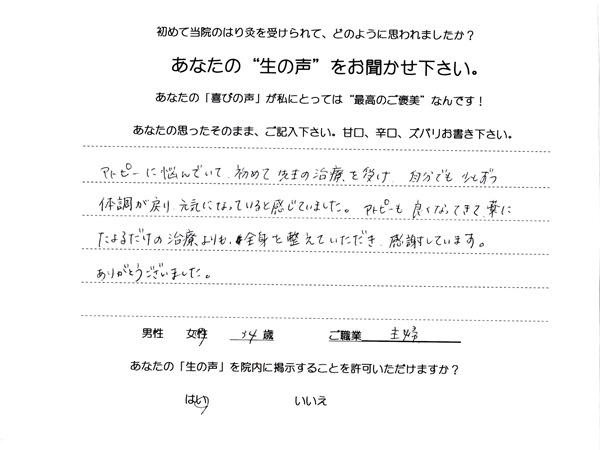 初めて当院のはり灸を受けられて、どのように思われましたか？
あなたの“生の声”をお聞かせ下さい。
あなたの「喜びの声」が私にとっては“最高のご褒美”なんです！
あなたの思ったそのまま、ご記入下さい。甘口、辛口、ズバリお書き下さい。
アトピーに悩んでいて、初めて先生の治療を受け、自分でも少しずつ
体調が戻り、元気になっていると感じていました。アトピーも良くなってきて、薬に
たよるだけの治療よりも、全身を整えていただき、感謝しています。
ありがとうございました。
男性 女性 歳 ご職業 主婦
あなたの「生の声」を院内に掲示することを許可いただけますか？
はい いいえ